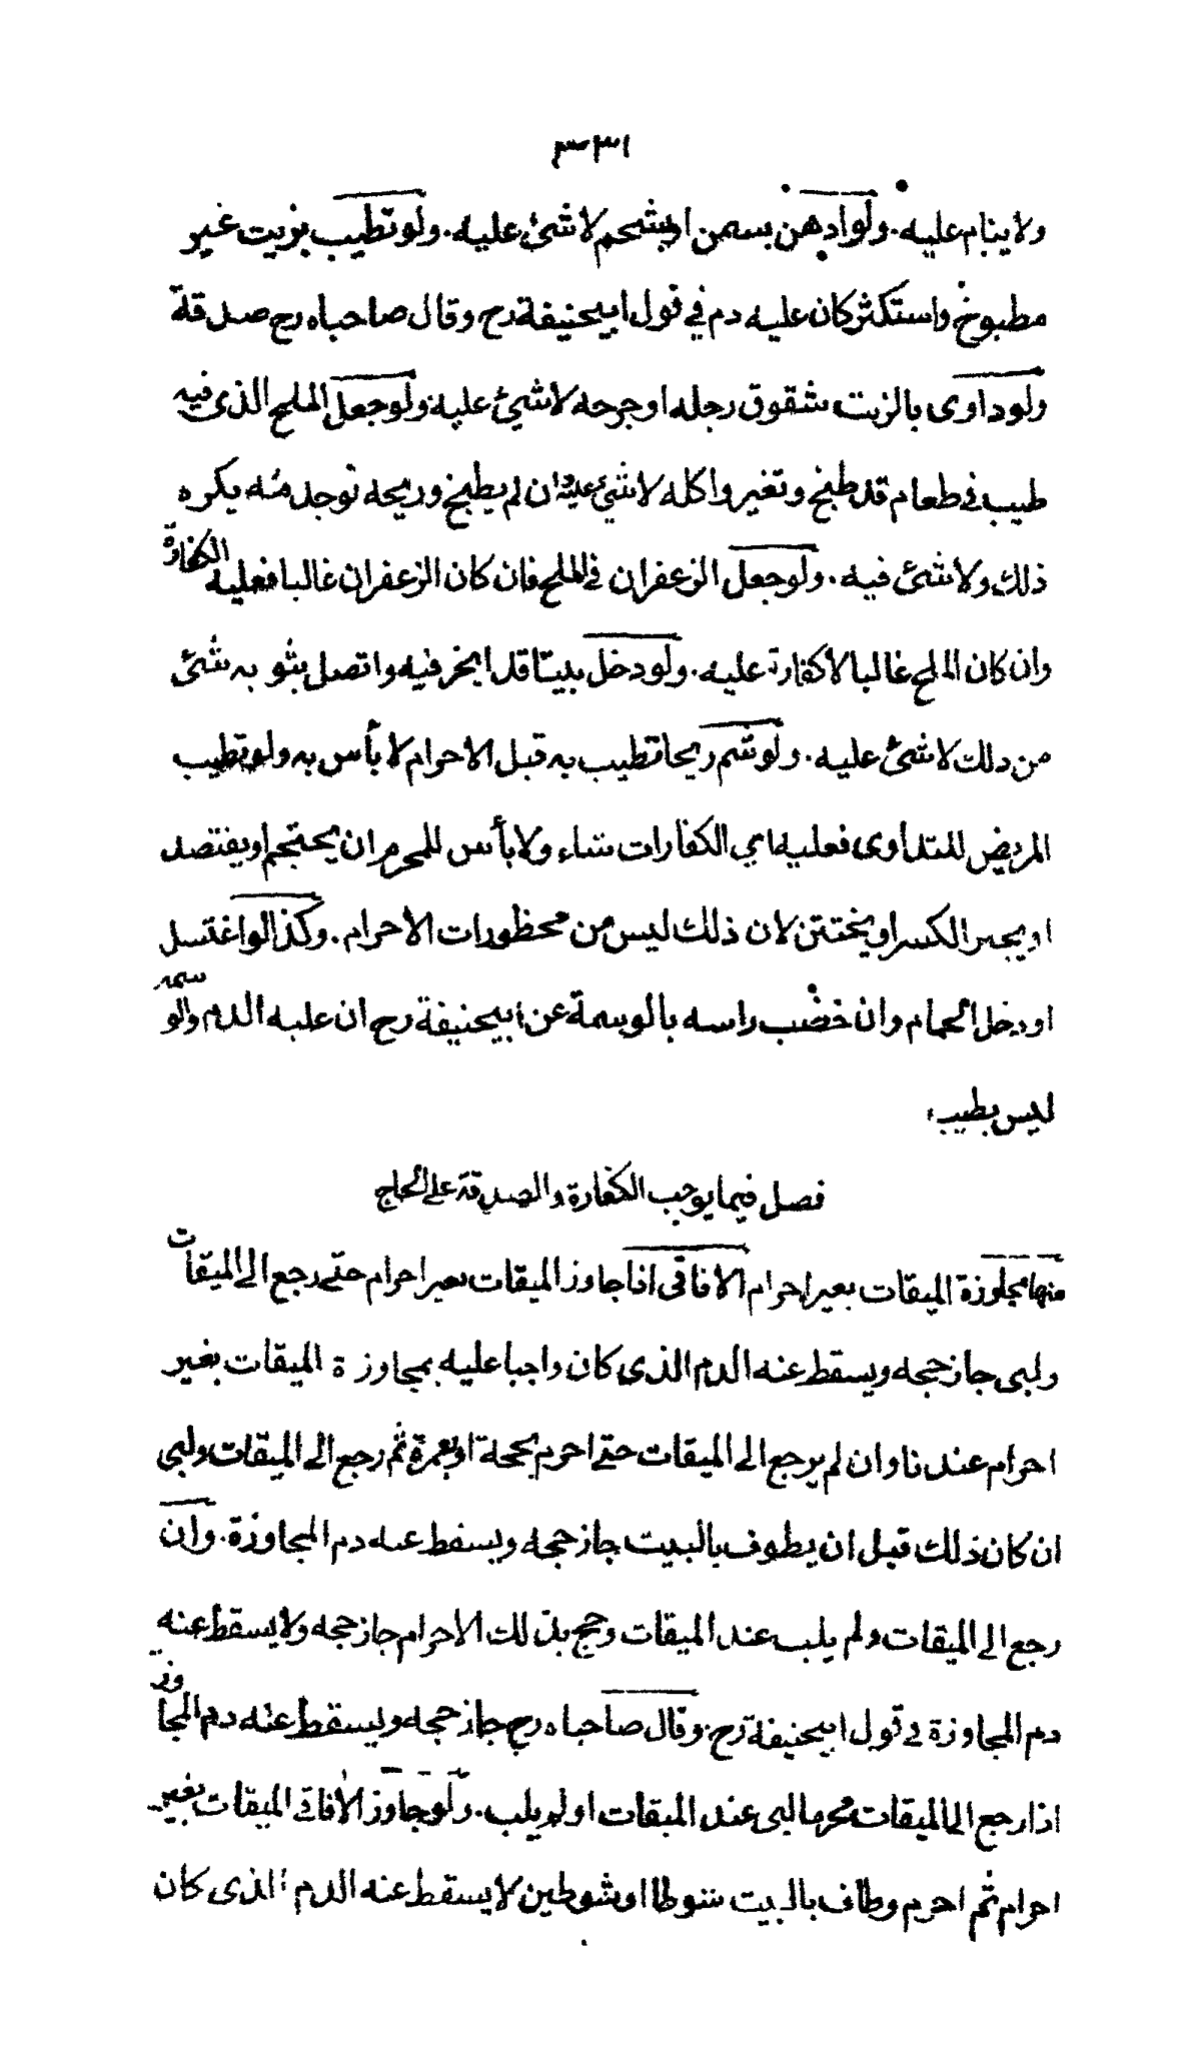 ٣٣١
ولا ينام عليه. ولو ادهن بسمن او بشحم لا شئ عليه. ولو تطيب بزيت غير
مطبوخ واستكثر كان عليه دم في قول ابيحنيفة رح وقال صاحباه رح صدقة
ولو داوى بالزيت شقوق رجله او جرحه لا شئ عليه ولو جعل الملح الذى فيه
طيب في طعام قد طبخ وتغير واكله لا شئ عليه وان لم يطبخ وريحه توجد منه يكره
ذلك ولا شئ فيه. ولو جعل الزعفران في الملح فان كان الزعفران غالبا فعليه الكفارة
وان كان الملح غالبا لا كفارة عليه. ولو دخل بيتا قد ابخر فيه واتصل بثوبه شئ
من ذلك لا شئ عليه. ولو شم ريحا تطيب به قبل الاحرام لا بأس به ولو تطيب
المريض للتداوى فعليه اى الكفارات شاء ولا بأس للمحرم ان يحتجم او يفتصد
او يجبر الكسر او يختتن لان ذلك ليس من محظورات الاحرام. وكذا لو اغتسل
او دخل الحمام وان خضب راسه بالوسمة عن ابيحنيفة رح ان عليه الدم والوسمه
ليس بطيب،
فصل فيما يوجب الكفارة والصدقة على الحاج
منها مجاوزة الميقات بغير احرام الافاقى اذا جاوز الميقات بغير احرام حتى رجع الى الميقات
ولبى جاز حجه ويسقط عنه الدم الذى كان واجبا عليه بمجاوزة الميقات بغير
احرام عندنا وان لم يرجع الى الميقات حتى احرم بحجة او بعمرة ثم رجع الى الميقات ولبى
ان كان ذلك قبل ان يطوف بالبيت جاز حجه ويسقط عنه دم المجاوزة. وان
رجع الى الميقات ولم يلب عند الميقات وحج بذلك الاحرام جاز حجه ولا يسقط عنه
دم المجاوزة في قول ابيحنيفة رح. وقال صاحباه رح جاز حجه ويسقط عنه دم المجاوزة
اذا رجع الى الميقات محرما لبى عند الميقات او لم يلب. ولو جاوز الافاقى الميقات بغير
احرام ثم احرم وطاف بالبيت شوطا او شوطين لا يسقط عنه الدم الذى كان